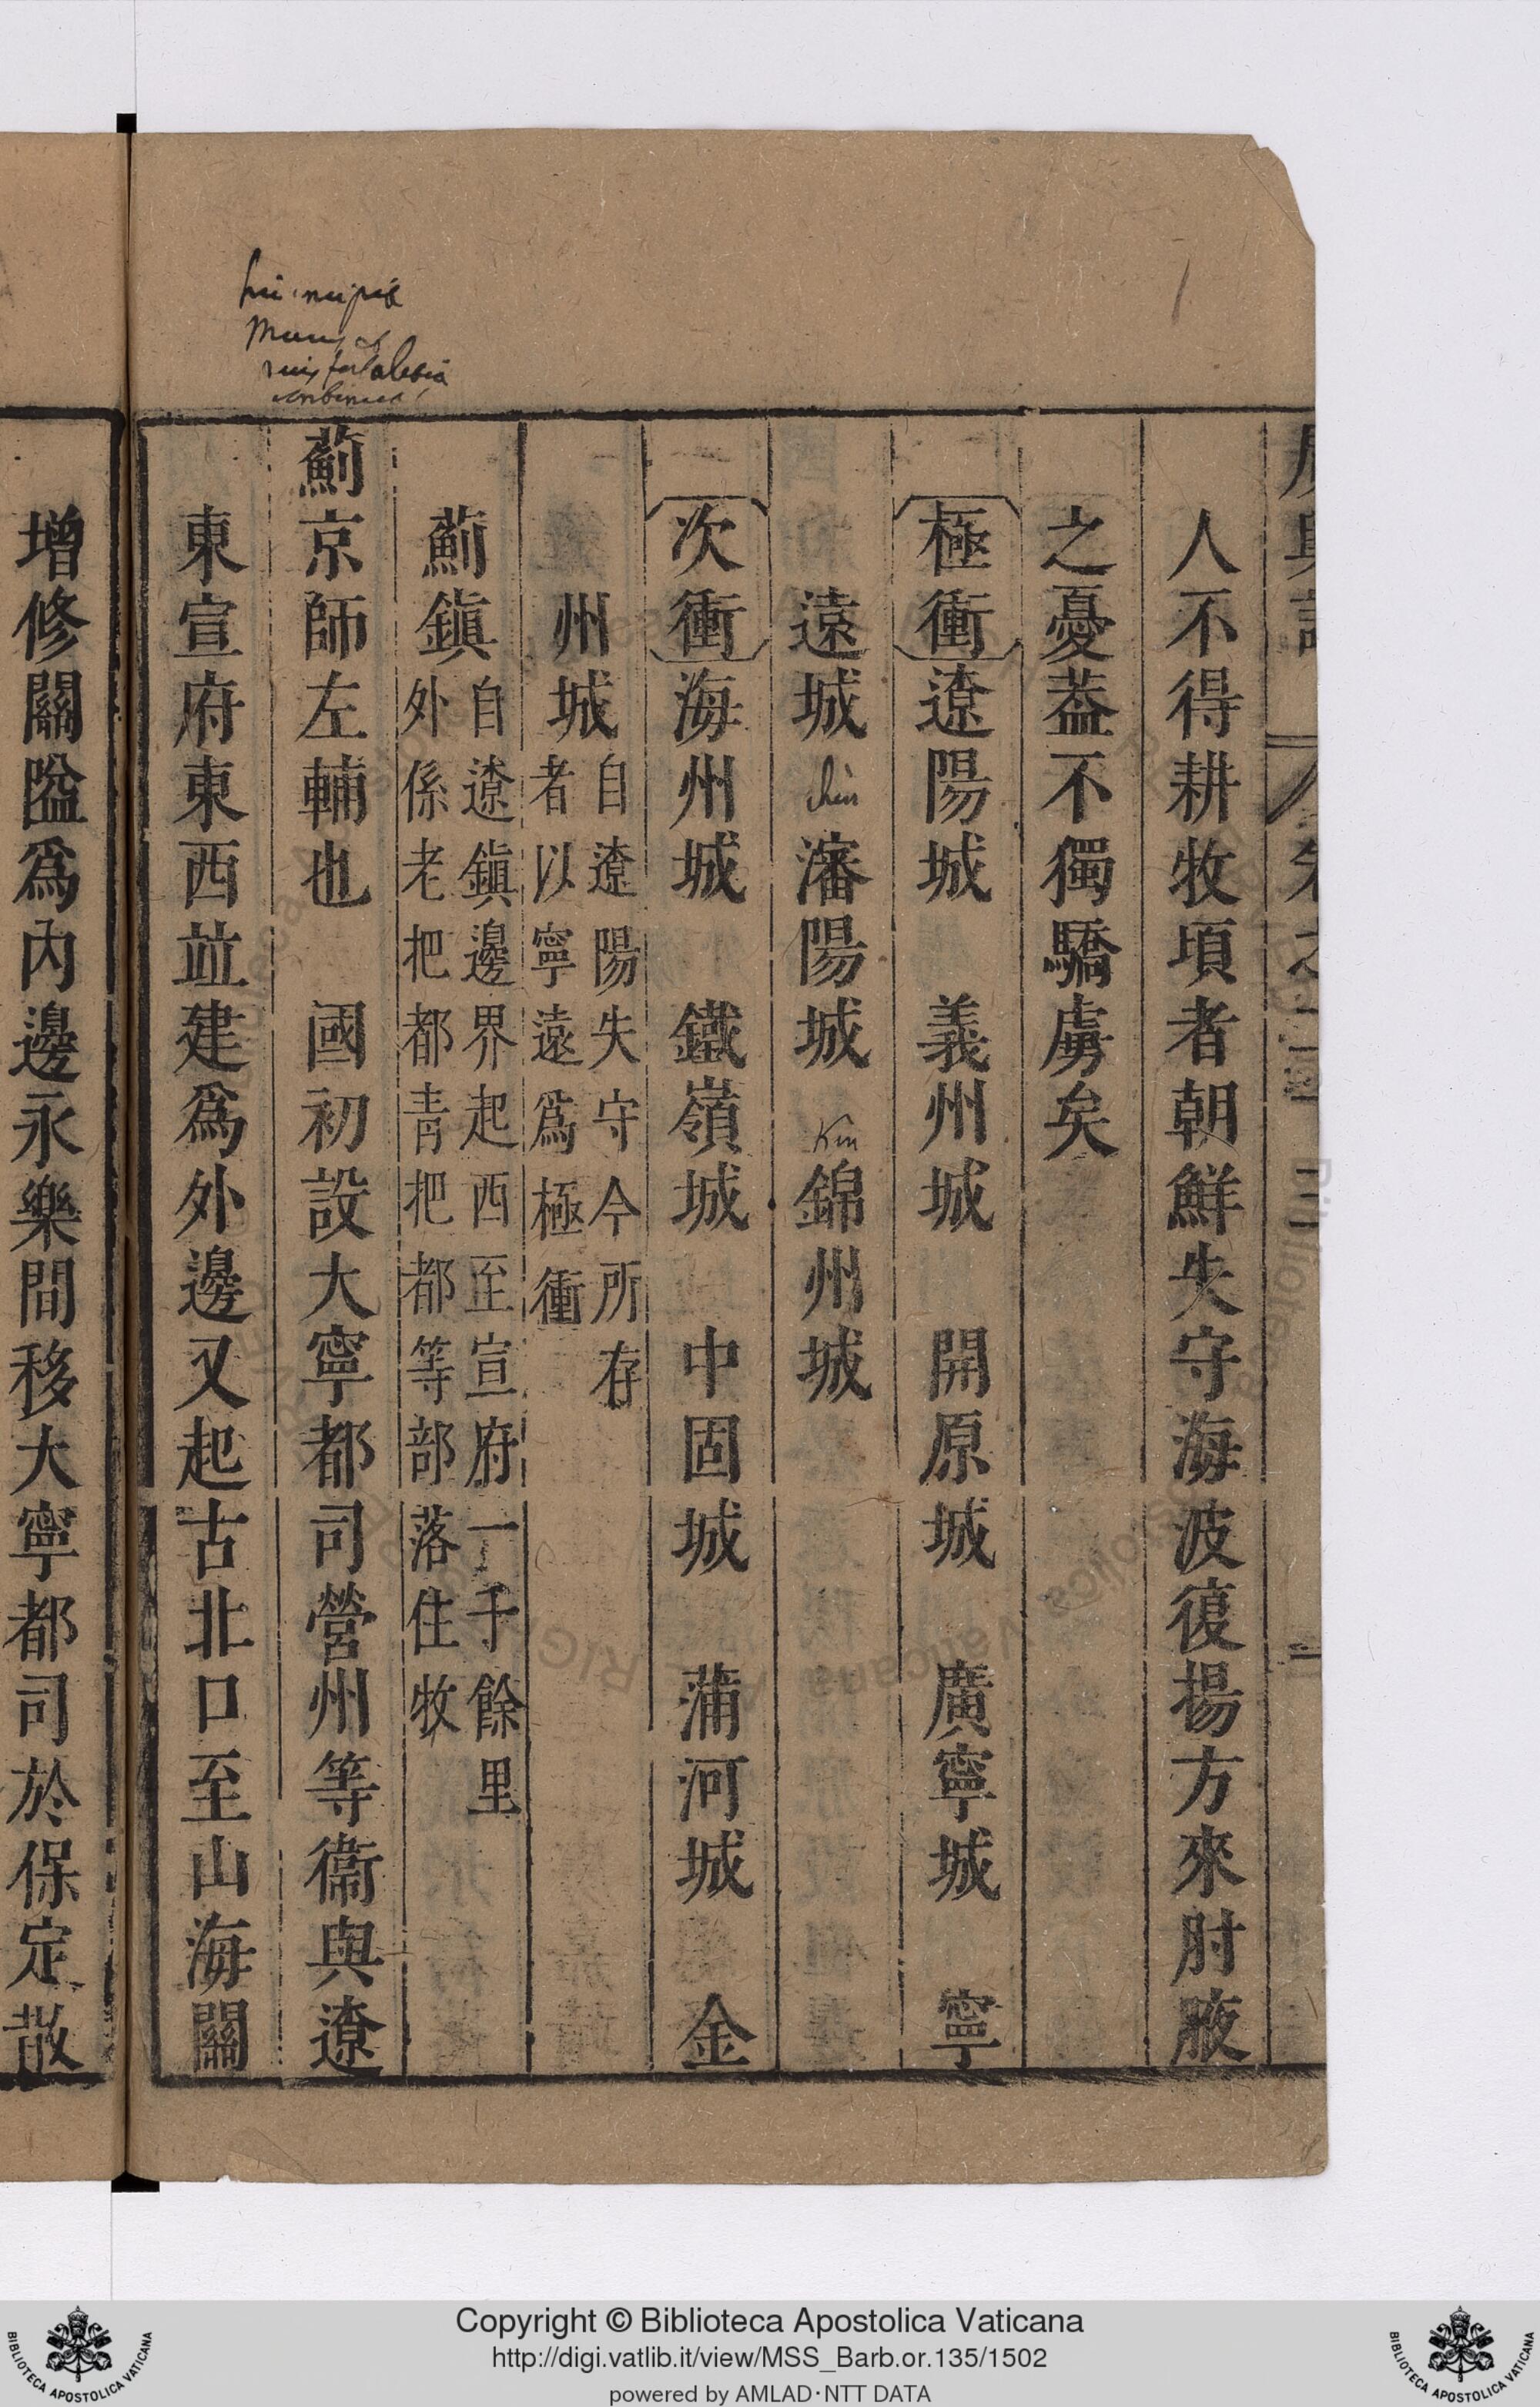 人不得耕牧頃者朝鮮失守海波復揚方來肘腋
之憂葢不獨驕虜矣
極衝遼陽城 義州城 開原城 廣寧城 寧
遠城 瀋陽城 錦州城
chin
Kin
次衝海州城 鐵嶺城 中固城 蒲河城 金
州城自遼陽失守今所存
者以寧遠爲極衝
薊鎮自遼鎮邊界起西至宣府一千餘里
外係老把都青把都等部落住牧
薊京師左輔也 國初設大寧都司營州等衞與遼
東宣府東西竝建爲外邊又起古北口至山海關
增修關隘爲內邊永樂間移大寧都司於保定散
Copyright © Biblioteca Apostolica Vaticana
http://digi.vatlib.it/view/MSS_Barb.or.135/1502
powered by AMLAD·NTT DATA
BIBLIOTECA APOSTOLICA VATICANA
BIBLIOTECA APOSTOLICA VATICANA